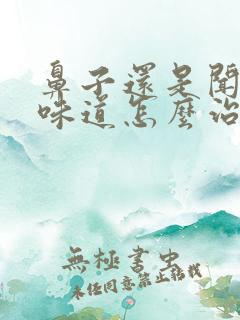 鼻子還是聞
味道怎麼治
無極書虫
未經同意禁止轉載